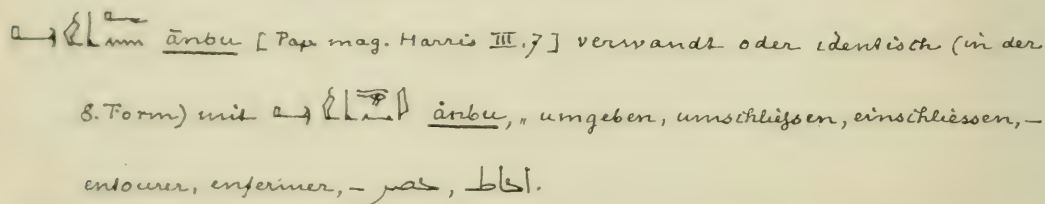 ānbu [Pap mag. Harris III.7] verwandt oder identisch (in der
8. Form) mit ānbu, „ umgeben, umschliessen, einschliessen, –
entourer, enfermer, – حصر, احاط.